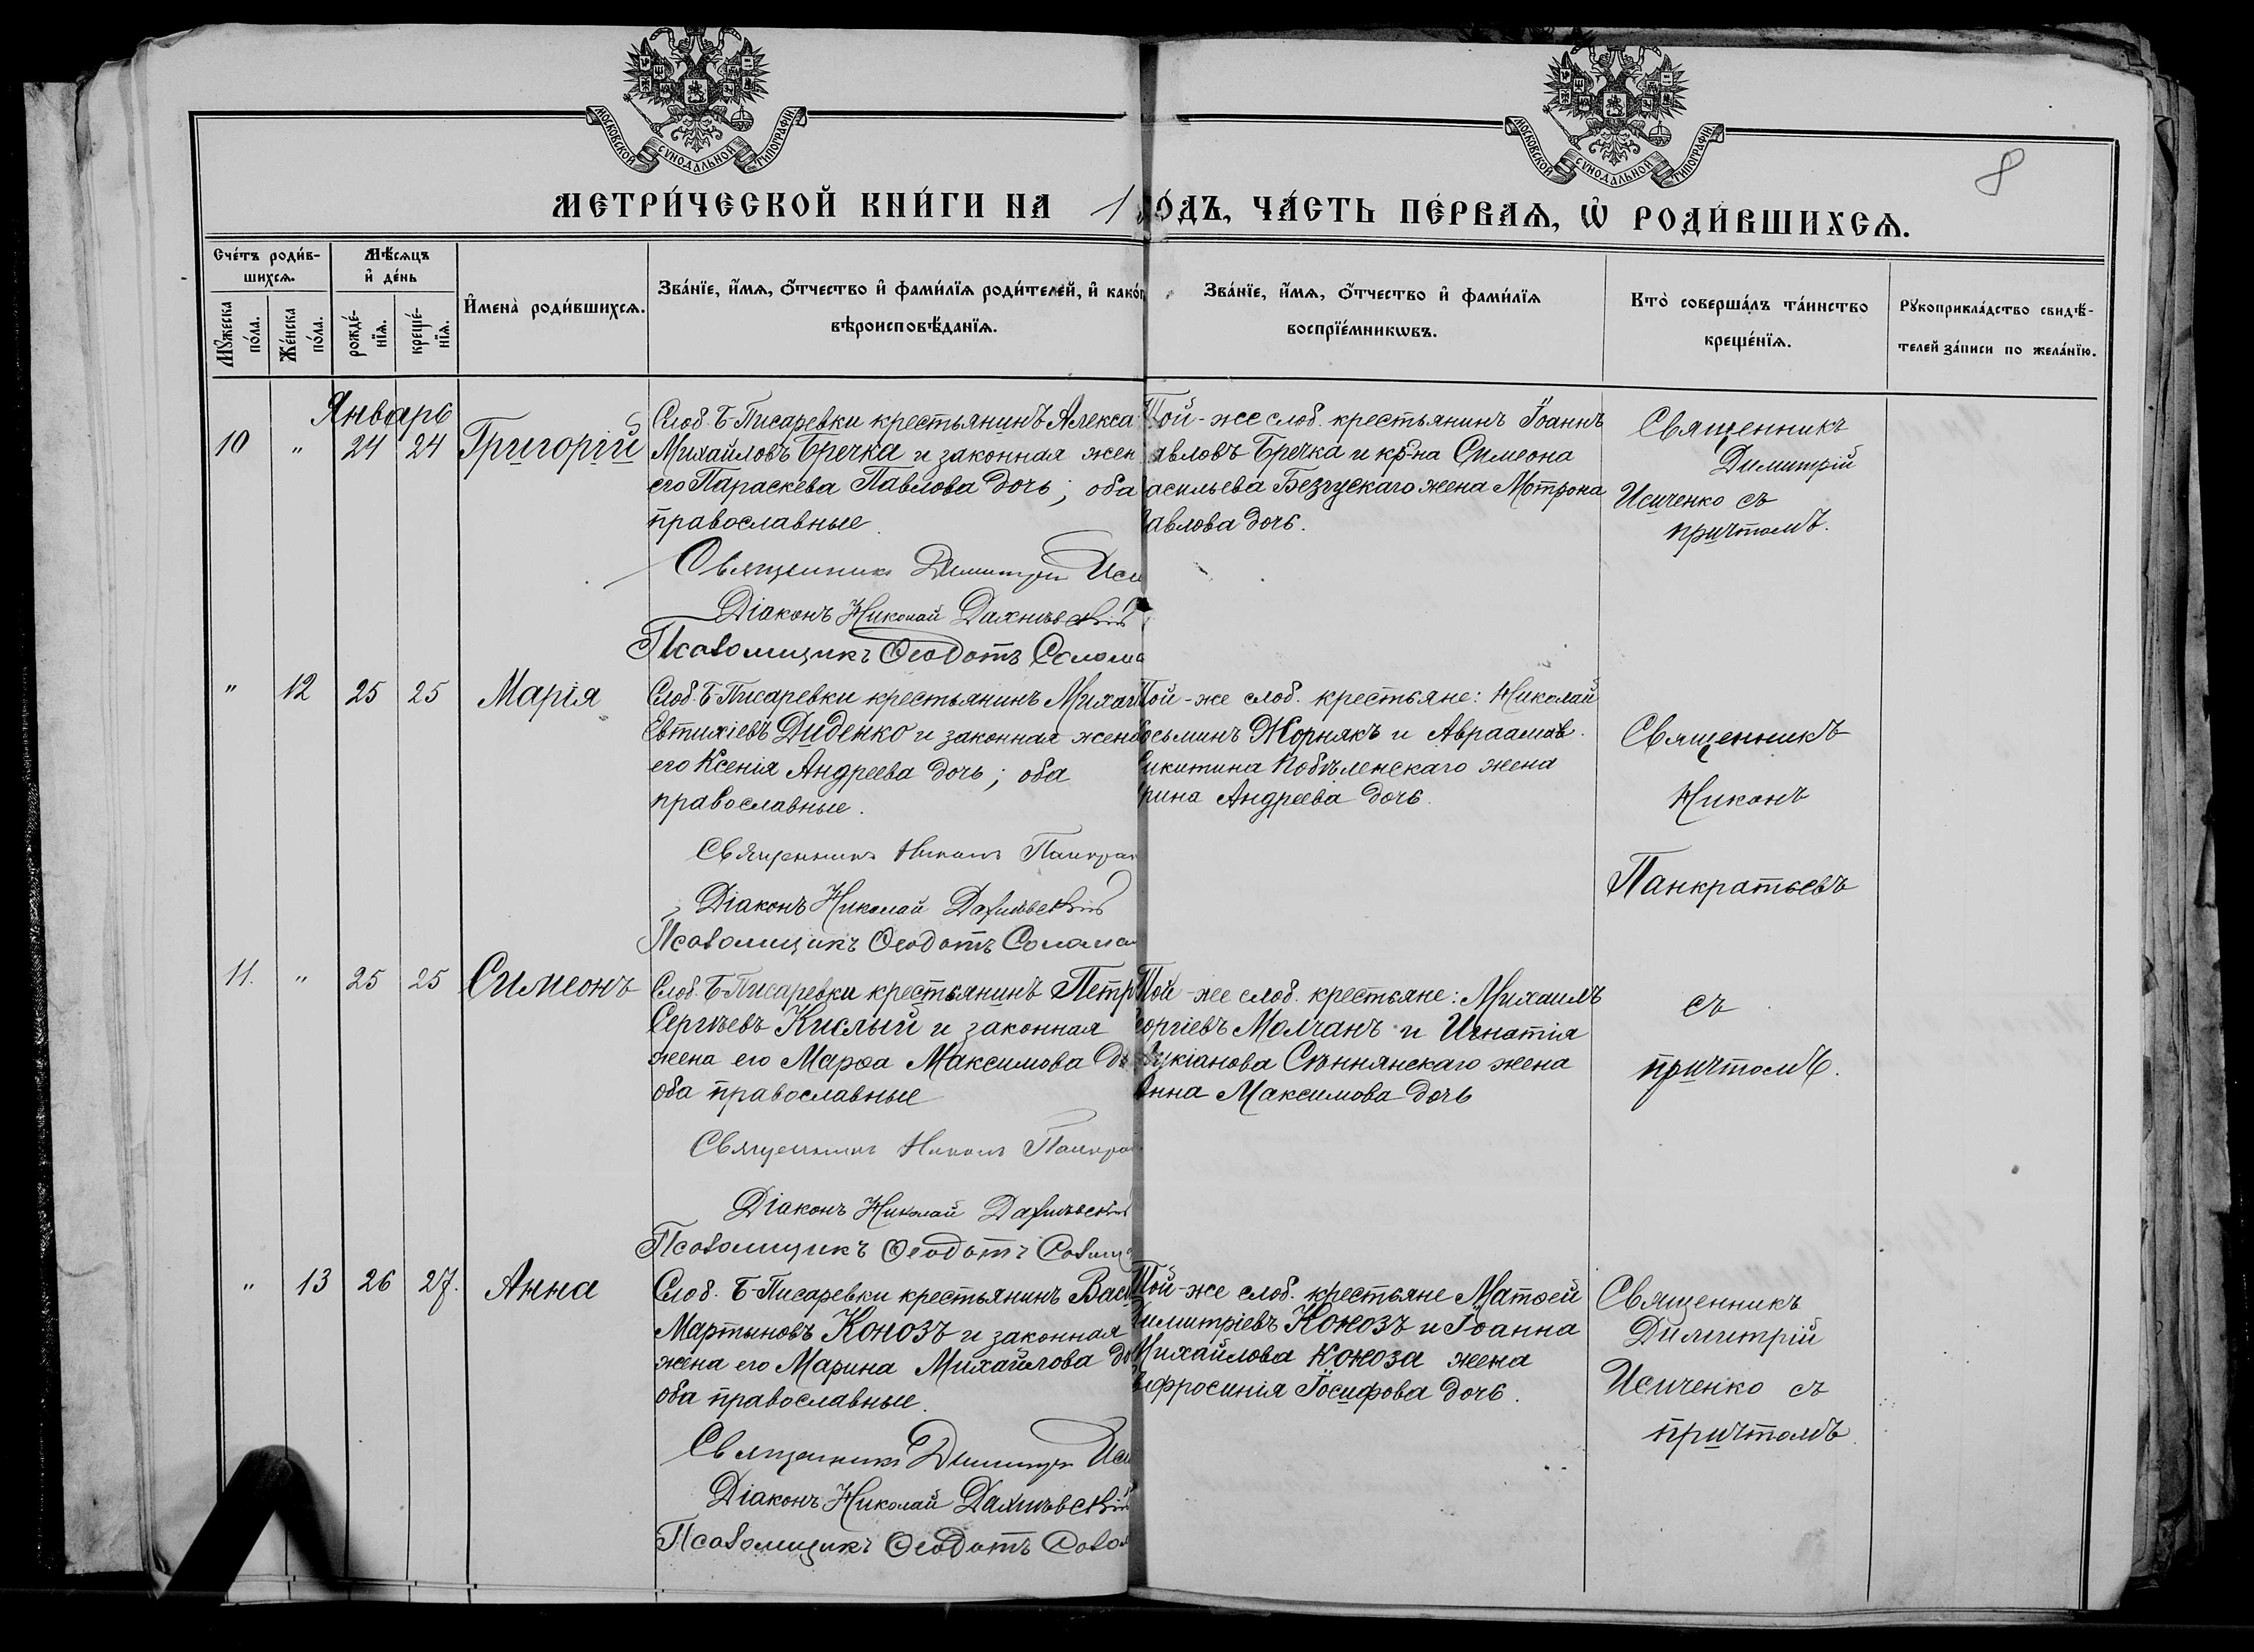 МОСКОВСКОЙ СѴНОДАЛЬНОЙ ТИПОГРАФІИ.
МОСКОВСКОЙ СѴНОДАЛЬНОЙ ТИПОГРАФІИ.
8
МЕТРИ́ЧЕСКОЙ КНИ́ГИ НА 1
О́ДЪ, ЧА́СТЬ ПЕ́РВАѦ, Ѡ҆ РОДИ́ВШИХСѦ.
Сче́тъ роди́в-
шихсѧ.
Мꙋ́жеска
по́ла.
Же́нска
по́ла.
Мѣ́сѧцъ
и҆ де́нь
рожде́-
нїѧ.
креще́-
нїѧ.
И҆мена̀ роди́вшихсѧ.
Зва́нїе, и҆́мѧ, ѻ҆́тчество и҆ фами́лїѧ роди́телей, и҆ како́г
вѣроисповѣ́данїѧ.
Зва́нїе, и҆́мѧ, ѻ҆́тчество и҆ фами́лїѧ
воспрїе́мникѡвъ.
Кто̀ соверша́лъ та́инство
креще́нїѧ.
Рꙋкоприкла́дство свидѣ́-
телей за́писи по жела́нїю.
Январь
10 " 24 24 Григорій
Слоб. Б-Писаревки крестьянинъ Алекса
Михайловъ Бречка и законная жен
его Параскева Павлова дочь; оба
православные.
Священникъ Димитрій Иси
Діаконъ Николай
Псаломщикъ Ѳеодотъ Солома
Той-же слоб. крестьянинъ Іоаннъ
авловъ Бречка и кр-на Симеона
асильева Безгускаго жена Мотрона
авлова дочь.
Священникъ
Димитрій
Исиченко съ
причтомъ.
" 12 25 25 Марія
Слоб. Б-Писаревки крестьянинъ Михаи
Евтихіевъ Диденко и законная жена
его Ксенія Андреева дочь; оба
православные.
Священникъ Никонъ Панкрат
Діаконъ Николай
Псаломщикъ Ѳеодотъ Солома
Той-же слоб. крестьяне: Николай
осьминъ Жорнякъ и Авраамов.
икитина Побѣленскаго жена
рина Андреева дочь.
Священникъ
Никонъ
Панкратьевъ
съ
причтомъ.
11. " 25 25 Симеонъ
Слоб. Б-Писаревки крестьянинъ Петр
Сергѣевъ Кислый и законная
жена его Марѳа Максимова до
оба православные
Священникъ Никонъ Панкра
Діаконъ Николай
Псаломщикъ Ѳеодотъ
Той-же слоб. крестьяне: Михаилъ
еоргіевъ Молчанъ и Игнатія
Лукіанова Сѣннянскаго жена
Анна Максимова дочь
" 13 26 27. Анна
Слоб. Б-Писаревки крестьянинъ Васи
Мартыновъ Конозъ и законная
жена его Марина Михайлова до
оба православные.
Священникъ Димитрій Иси
Діаконъ Николай
Псаломщикъ Ѳеодотъ Соло
Той-же слоб. крестьяне Матѳей
Димитріевъ Конозъ и Іоанна
Михайлова Коноза жена
Евфросинія Іосифова дочь.
Священникъ
Димитрій
Исиченко съ
причтомъ.